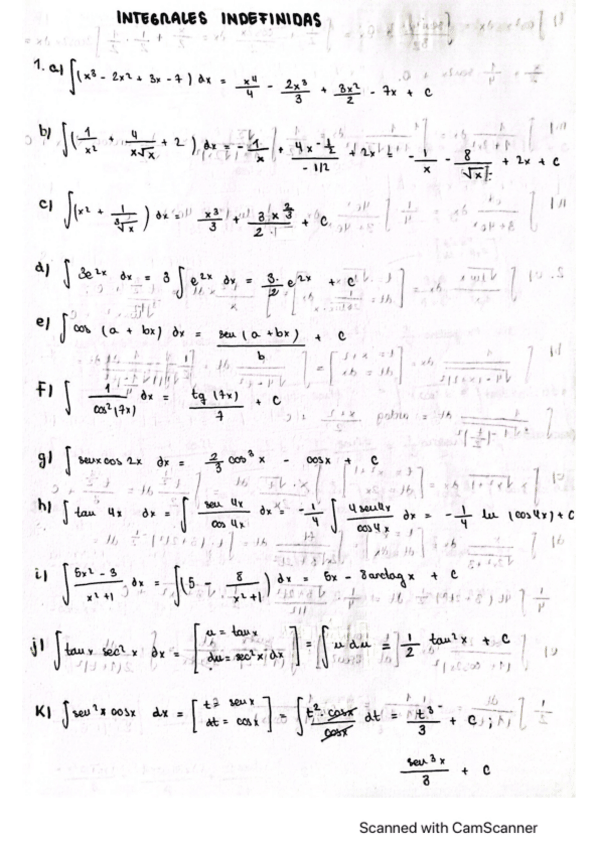 INTEGRALES INDEFINIDAS
1. a) ∫(x³ - 2x² + 3x - 7) dx = x⁴/4 - 2x³/3 + 3x²/2 - 7x + C
b) ∫(1/x² + 4/(x√x) + 2) dx = -1/x + 4x^(-1/2)/(-1/2) + 2x = -1/x - 8/√x + 2x + C
c) ∫(x² + 1/∛x) dx = x³/3 + 3x^(2/3)/2 + C
d) ∫ 3e^(2x) dx = 3 ∫ e^(2x) dx = 3/2 e^(2x) + C
e) ∫ cos (a + bx) dx = sen (a + bx)/b + C
f) ∫ 1/cos²(7x) dx = tg (7x)/7 + C
g) ∫ senx cos 2x dx = 2/3 cos³ x - cosx + C
h) ∫ tan 4x dx = ∫ sen 4x/cos 4x dx = -1/4 ∫ 4sen4x/cos4x dx = -1/4 ln (cos4x) + C
i) ∫ (5x² - 3)/(x² + 1) dx = ∫(5 - 8/(x² + 1)) dx = 5x - 8arctag x + C
j) ∫ tanx sec² x dx = [u = tanx du = sec²x dx] = ∫ u du = 1/2 tan²x + C
K) ∫ sen²x cosx dx = [t = senx dt = cosx] = ∫ t² · cosx/cosx dt = t³/3 + C ;
sen³x/3 + C
Scanned with CamScanner